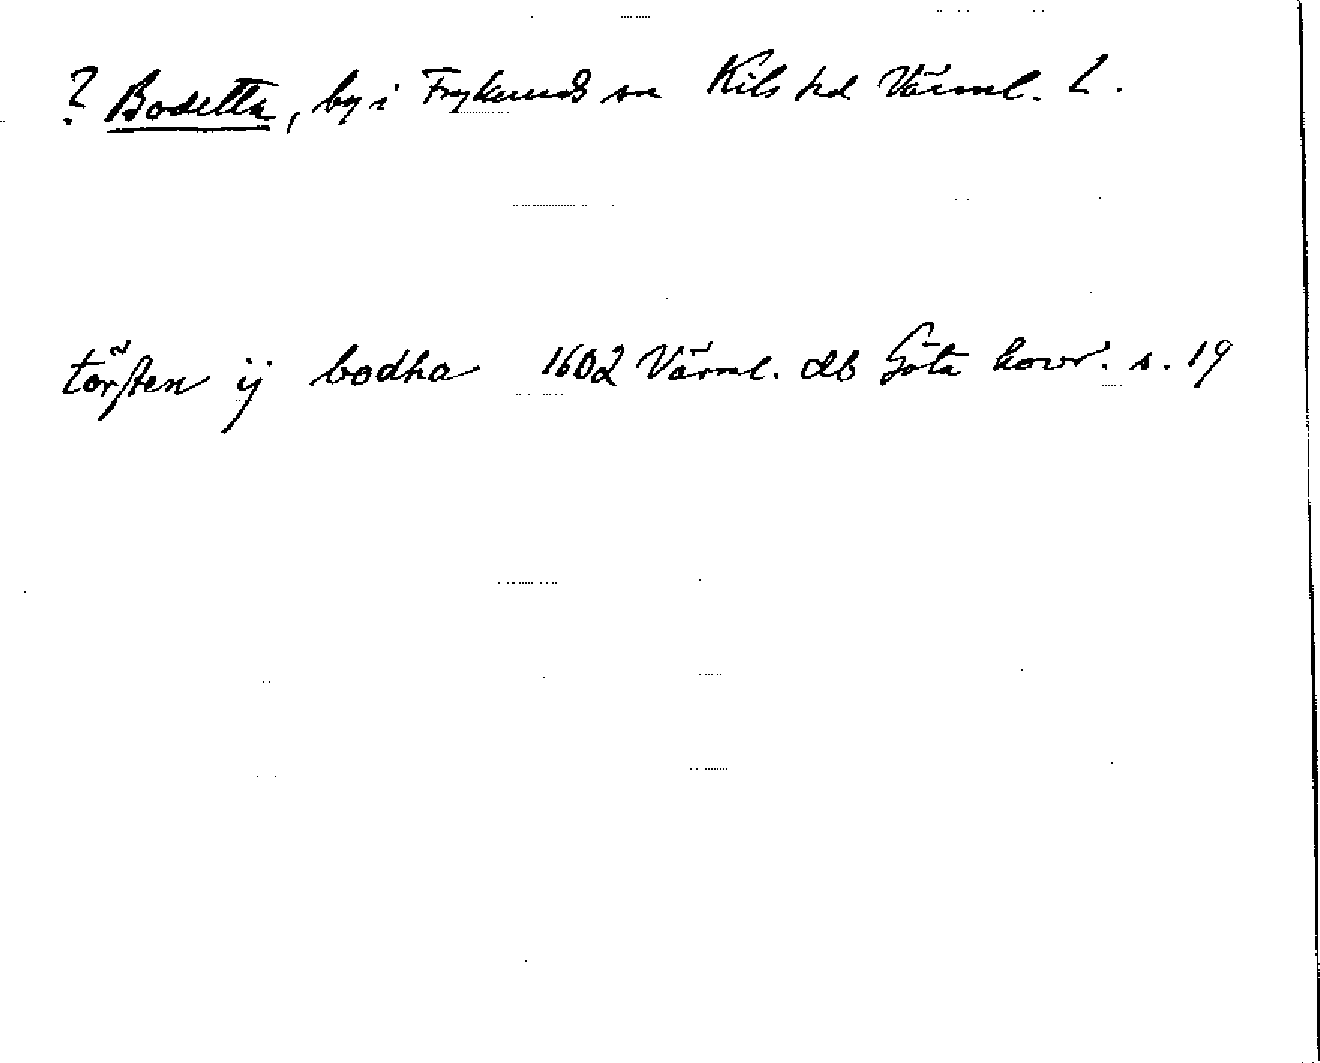 ? Bosetta, by i Frykeruds sn Kils hd Värml. L.
törsten ij bodha 1602 Värml. db Göta hovr. s. 19